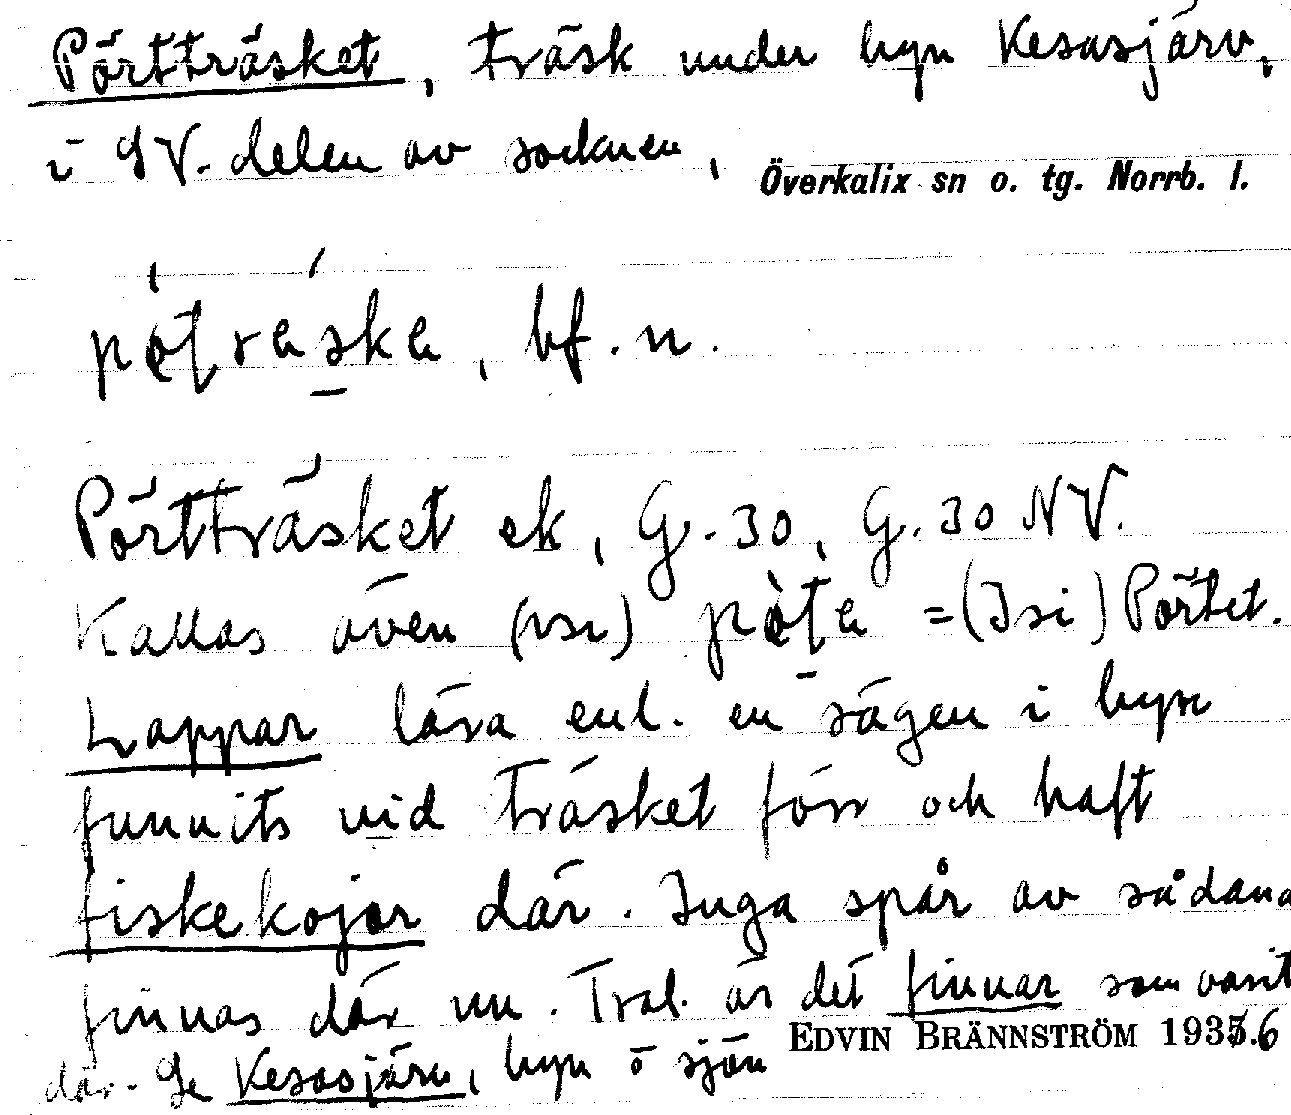 Pörtträsket, träsk under byn Kesasjärv,
i SV. delen av socknen,
Överkalix sn o. tg. Norrb. l.
bf. n.
Pörtträsket ek, G. 30, G. 30 NV.
Kallas även = (Isi) Pörtet.
Lappar lära enl. en sägen i byn
funnits vid träsket förr och haft
fiskekojor där. Inga spår av sådana
finnas där nu. Trol. är det finnar som varit
EDVIN BRÄNNSTRÖM 1936
där. Se Kesasjärv, byn o sjön